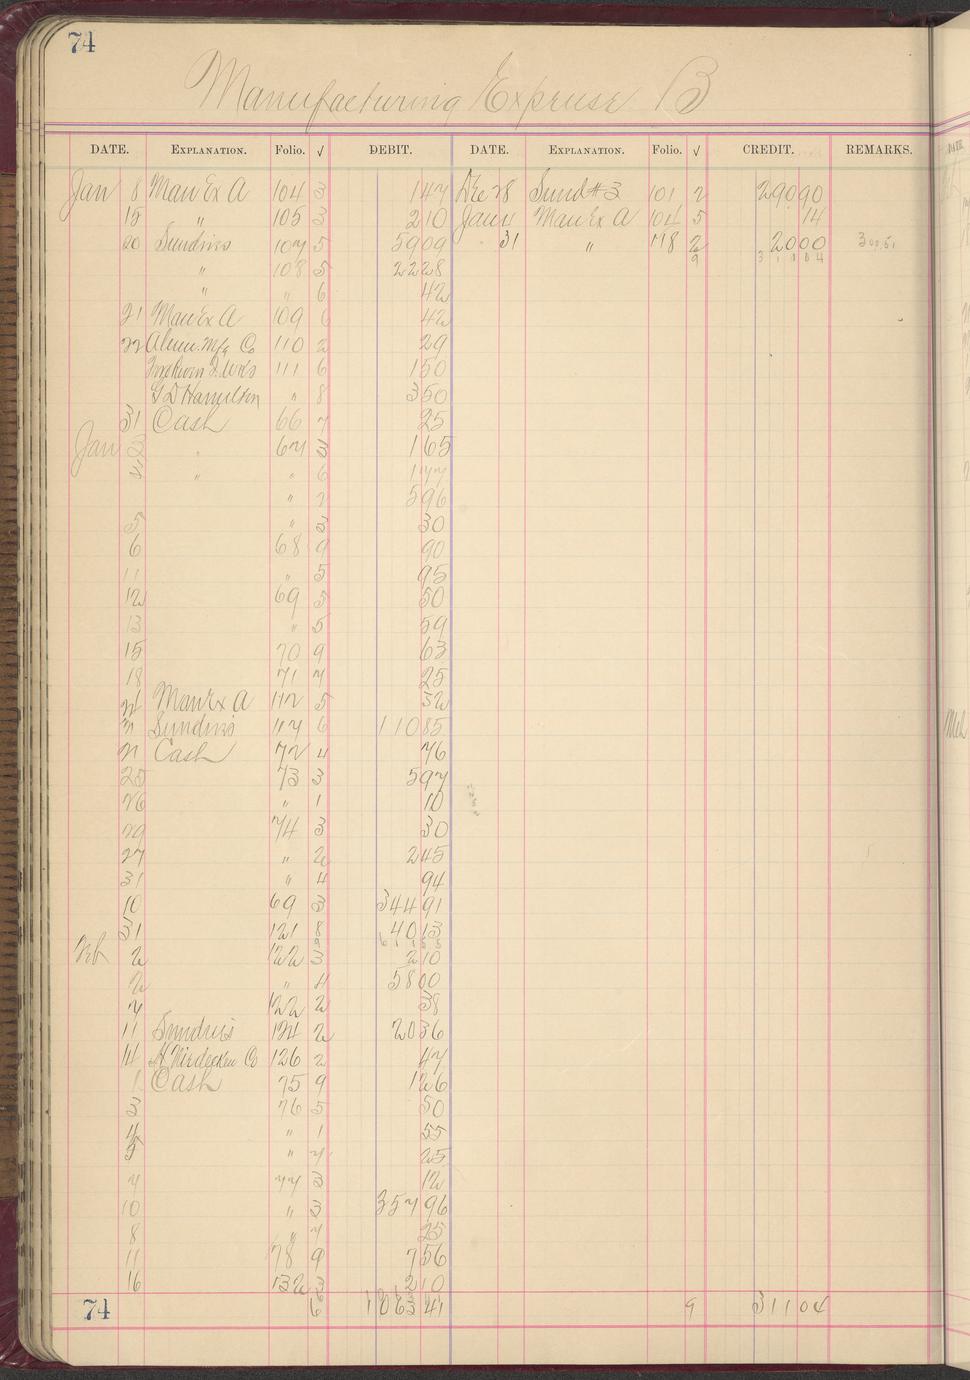 74
Manufacturing Expense B
DATE. EXPLANATION. FOLIO. √ DEBIT. DATE. EXPLANATION. FOLIO. √ CREDIT. REMARKS.
Jan 8 Man Ex A 104 3 1 47 Dec 28 Sund #3 101 2 290 90
15 " 105 3 2 10 Jan 4 Man Ex A 104 5 14
20 Sundries 107 5 59 09 31 " 118 2 20 00
" 108 5 22 28 9 311 04
" " 6 42
21 Man Ex A 109 6 42
22 Alum. Mfg Co 110 2 29
111 6 1 50
G D Hamilton " 8 3 50
31 Cash 66 7 25
Jan 2 " 67 3 1 65
" " 6 1 77
" 7 5 96
5 " 3 30
6 68 9 90
11 " 5 95
12 69 5 50
13 " 5 59
15 70 9 63
18 71 7 25
21 Man Ex A 112 5 52
21 Sundries 117 6 110 85
21 Cash 72 4 76
25 73 3 5 97
26 " 1 10
29 74 3 30
27 " 2 2 45
31 " 4 94
10 69 3 344 91
31 121 8 40 13
9 611 88
Feb 2 122 3 2 10
2 " 4 58 00
7 122 2 38
11 Sundries 124 2 20 36
14 126 2 47
1 Cash 75 9 1 26
3 76 5 50
4 " 1 55
5 " 7 25
7 77 3 12
10 " 3 357 96
8 " 7 25
11 78 9 7 56
16 132 3 2 10
74 6 1063 41 9 311 04